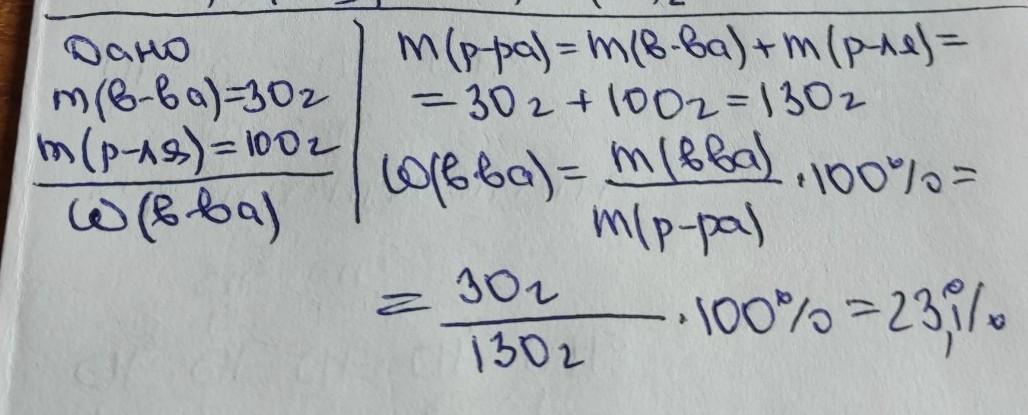 Дано
m(в-ва)=30г
m(р-ля)=100г
ω(в-ва)
m(р-ра)=m(в-ва)+m(р-ля)=
=30г+100г=130г
ω(в-ва)=m(вва)/m(р-ра)·100%=
=30г/130г·100%=23,1%